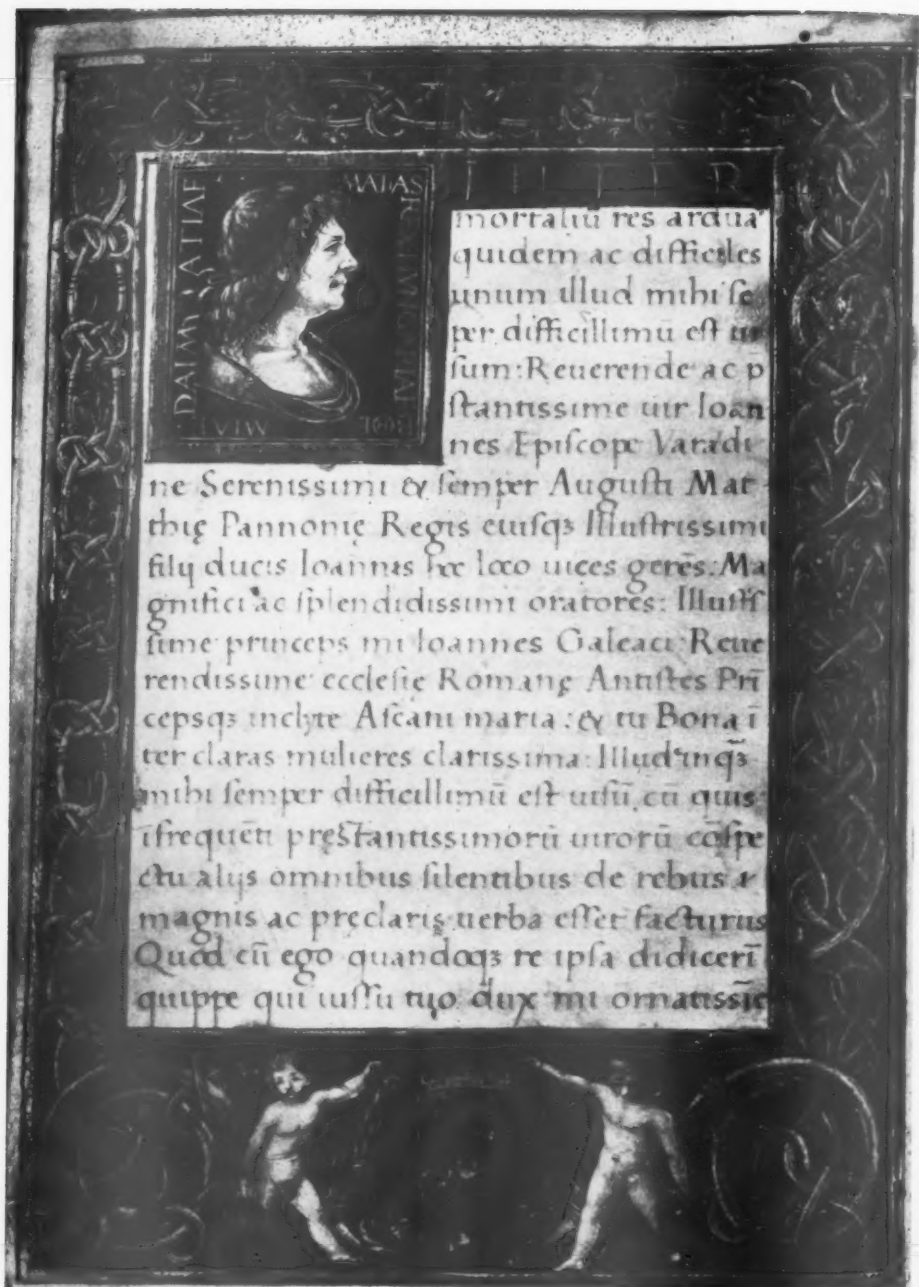 MATIAS
INTER
mortaliũ res ardua
quidem ac difficiles
unum illud mihi ſe
per difficillimũ eſt ui
ſum: Reuerende ac p̄
ſtantissime uir Ioan
nes Epiſcope Varadi
ne Serenissimi & ſemper Auguſti Mat
thię Pannonię Regis eiuſqꝫ Illuſtrissimi
filij ducis Ioannis hoc loco uices gerẽs: Ma
gnifici ac ſplendidissimi oratores: Illuſtſ
ſime princeps mi Ioannes Galeaci: Reue
rendissime eccleſię Romanę Antiſtes Prĩ
cepsqꝫ inclyte Aſcani maria: & tu Bona ĩ
ter claras mulieres clarissima: Illud inqꝫ̃
mihi ſemper difficillimũ eſt uiſũ, cũ quis
ĩfrequẽti pręſtantissimorũ uirorũ cõſpe
ctu alijs omnibus ſilentibus de rebus
magnis ac pręclaris uerba eſſet facturus
Quod cũ ego quandoqꝫ re ipſa didicerĩ
quippe qui iuſſu tuo dux mi ornatissĩe